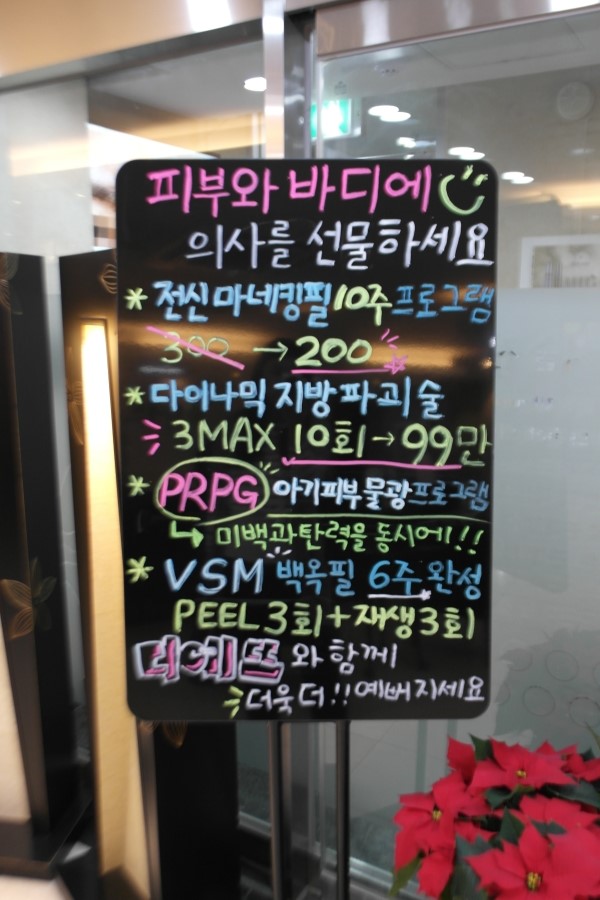 피부와 바디에
의사를 선물하세요
* 전신 마네킹필 10주 프로그램
300 → 200
* 다이나믹 지방파괴술
3MAX 10회 → 99만
* PRPG 아기피부물광프로그램
↳ 미백과 탄력을 동시에!!
* VSM 백옥필 6주 완성
PEEL 3회 + 재생 3회
리케뜨와 함께
더욱 더!! 예뻐지세요